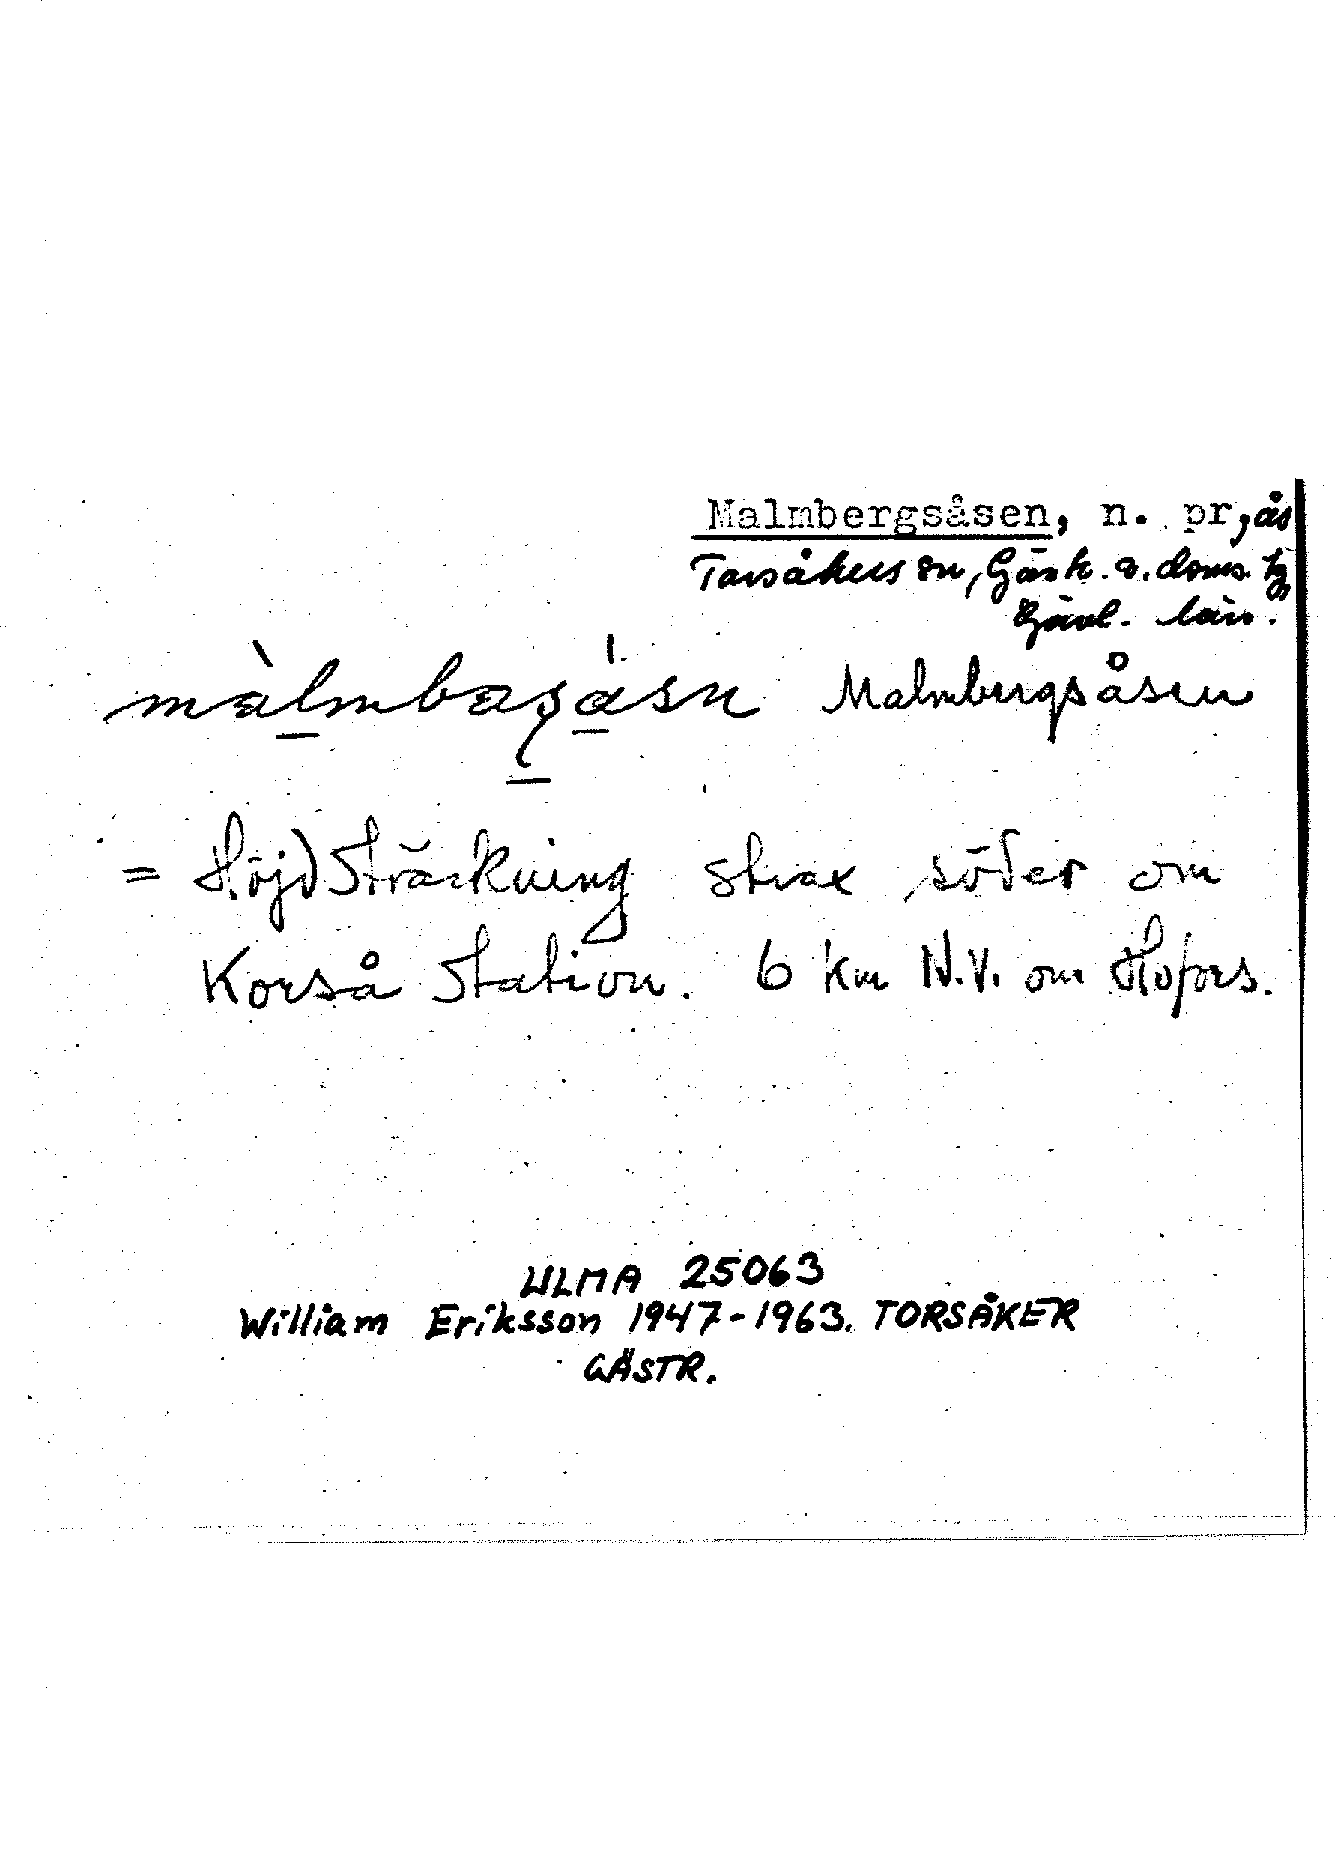 Malmbergsåsen, n. pr, ås
Torsåkers sn, Gäst. ö. doms. tg
Gävl. län.
Malmbergsåsen
= Höjdsträckning strax söder om
Korså Station. 6 km N.V. om Hofors.
ULMA 25063
William Eriksson 1947-1963. TORSÅKER
GÄSTR.